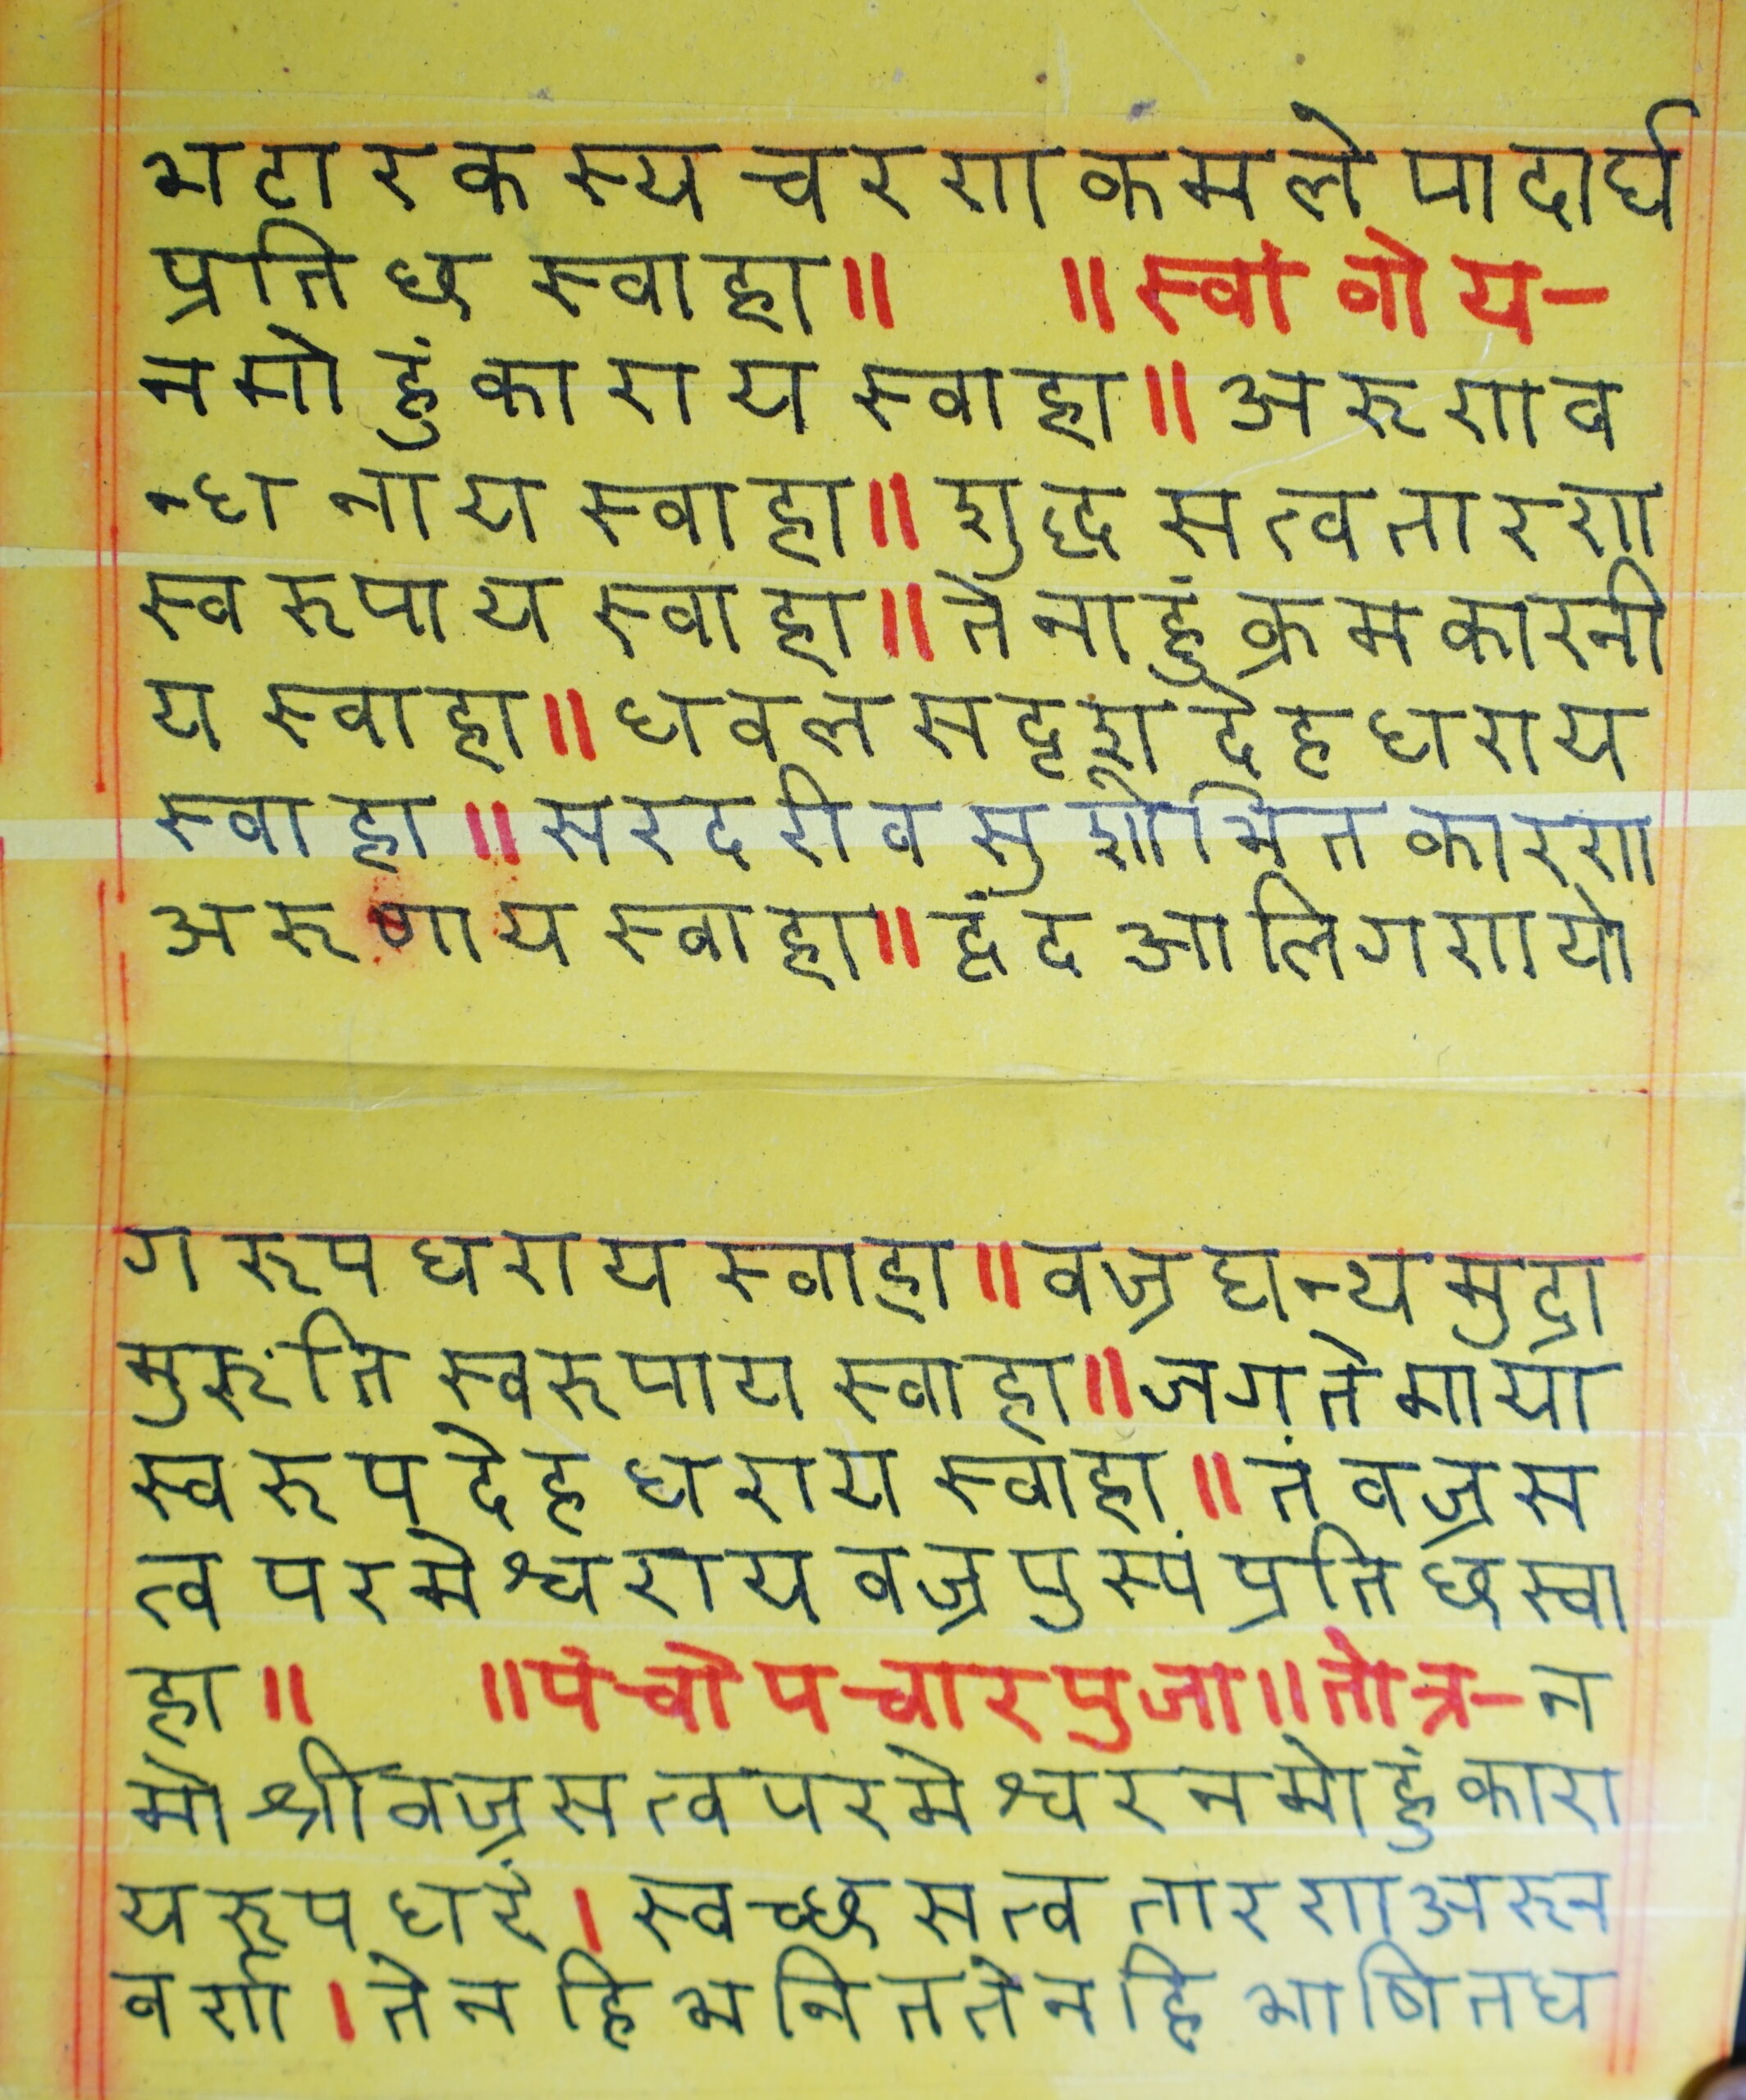 भटारकस्य चरणकमले पादार्घ
प्रतिछ स्वाहा॥ ॥स्वां वोय-
नमो हुं काराय स्वाहा॥ अरुणव
न्धनाय स्वाहा॥ शुद्ध सत्व तारण
स्वरुपाय स्वाहा॥ तेनाहुं क्रमकारनी
य स्वाहा॥ धवल सदृश देह धराय
स्वाहा॥ सरदरीव सुशोभित कारण
अरुणाय स्वाहा॥ द्वंद आलिगणयो
ग रुप धराय स्वाहा॥ वज्र धन्य मुद्रा
मुरुति स्वरुपाय स्वाहा॥ जगत माया
स्वरुप देह धराय स्वाहा॥ तं वज्रस
त्व परमेश्वराय वज्र पुस्पं प्रतिछ स्वा
हा॥ ॥पंचोपचार पुजा॥ तोत्र- न
मो श्री वज्रसत्व परमेश्वर नमो हुं कारा
य रुप धरं। स्वच्छ सत्व तारण अरुन
वर्ण। तेन हि भनित तेन हि भाषित ध